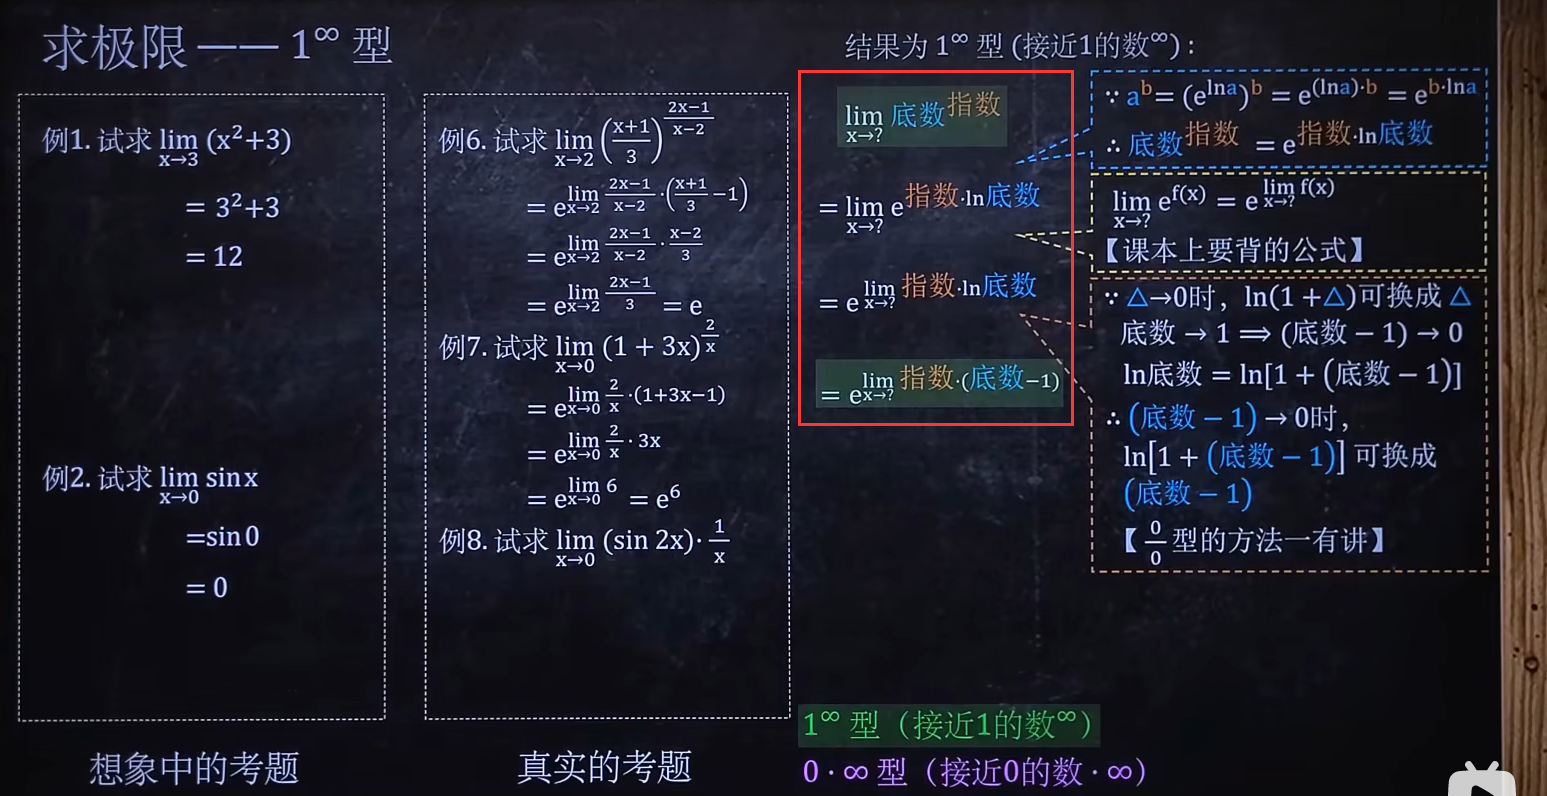 求极限 —— 1^∞ 型
例1. 试求 lim_{x→3} (x²+3)
= 3²+3
= 12
例2. 试求 lim_{x→0} sin x
=sin 0
= 0
想象中的考题
例6. 试求 lim_{x→2} ((x+1)/3)^{(2x−1)/(x−2)}
= e^{lim_{x→2} (2x−1)/(x−2)·((x+1)/3 −1)}
= e^{lim_{x→2} (2x−1)/(x−2)·(x−2)/3}
= e^{lim_{x→2} (2x−1)/3} = e
例7. 试求 lim_{x→0} (1 + 3x)^{2/x}
= e^{lim_{x→0} 2/x ·(1+3x−1)}
= e^{lim_{x→0} 2/x · 3x}
= e^{lim_{x→0} 6} = e⁶
例8. 试求 lim_{x→0} (sin 2x)· 1/x
真实的考题
结果为 1^∞ 型 (接近1的数^∞) :
lim_{x→?} 底数^{指数}
= lim_{x→?} e^{指数·ln底数}
= e^{lim_{x→?} 指数·ln底数}
= e^{lim_{x→?} 指数·(底数−1)}
∵ a^b = (e^{lna})^b = e^{(lna)·b} = e^{b·lna}
∴ 底数^{指数} = e^{指数·ln底数}
lim_{x→?} e^{f(x)} = e^{lim_{x→?} f(x)}
【课本上要背的公式】
∵ △→0时，ln(1 +△)可换成 △
底数 → 1 ⟹ (底数 − 1) → 0
ln底数 = ln[1 + (底数 − 1)]
∴ (底数 − 1) → 0时，
ln[1 + (底数 − 1)] 可换成
(底数 − 1)
【 0/0 型的方法一有讲】
1^∞ 型（接近1的数^∞）
0 · ∞ 型（接近0的数 · ∞）